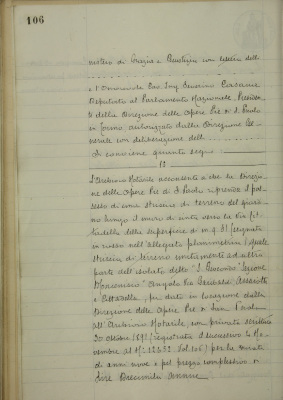 106
nistro di Grazia e Giustizia con lettera delli
e l'Onorevole Cav. Ing. Severino Casana
Deputato al Parlamento Nazionale, Presiden-
te della Direzione delle Opere Pie di S. Paolo
in Torino autorizzato dalla Direzione Ge-
nerale con deliberazione delli
Si conviene quanto segue
1º
L'Archivio Notarile acconsente a che la Direzio-
ne delle Opere Pie di S. Paolo prenda il pos-
sesso di una striscia di terreno del giardi-
no lungo il muro di cinta verso la Via Cit-
tadella della superficie di m.q. 31 segnata
in rosso nell'allegata planimetria, quale
striscia di terreno unitamente ad altra
parte dell'isolato detto "S. Giocondo" Sezione
Monviso angolo Vie Garibaldi, Assarotti
e Cittadella, fu data in locazione dalla
Direzione delle Opere Pie di San Paolo
all'Archivio Notarile con privata scrittura
30 Ottobre 1891 registrata il successivo No-
vembre al Nº 12633 Vol. per la durata
di anni nove e pel prezzo complessivo di
Lire annue